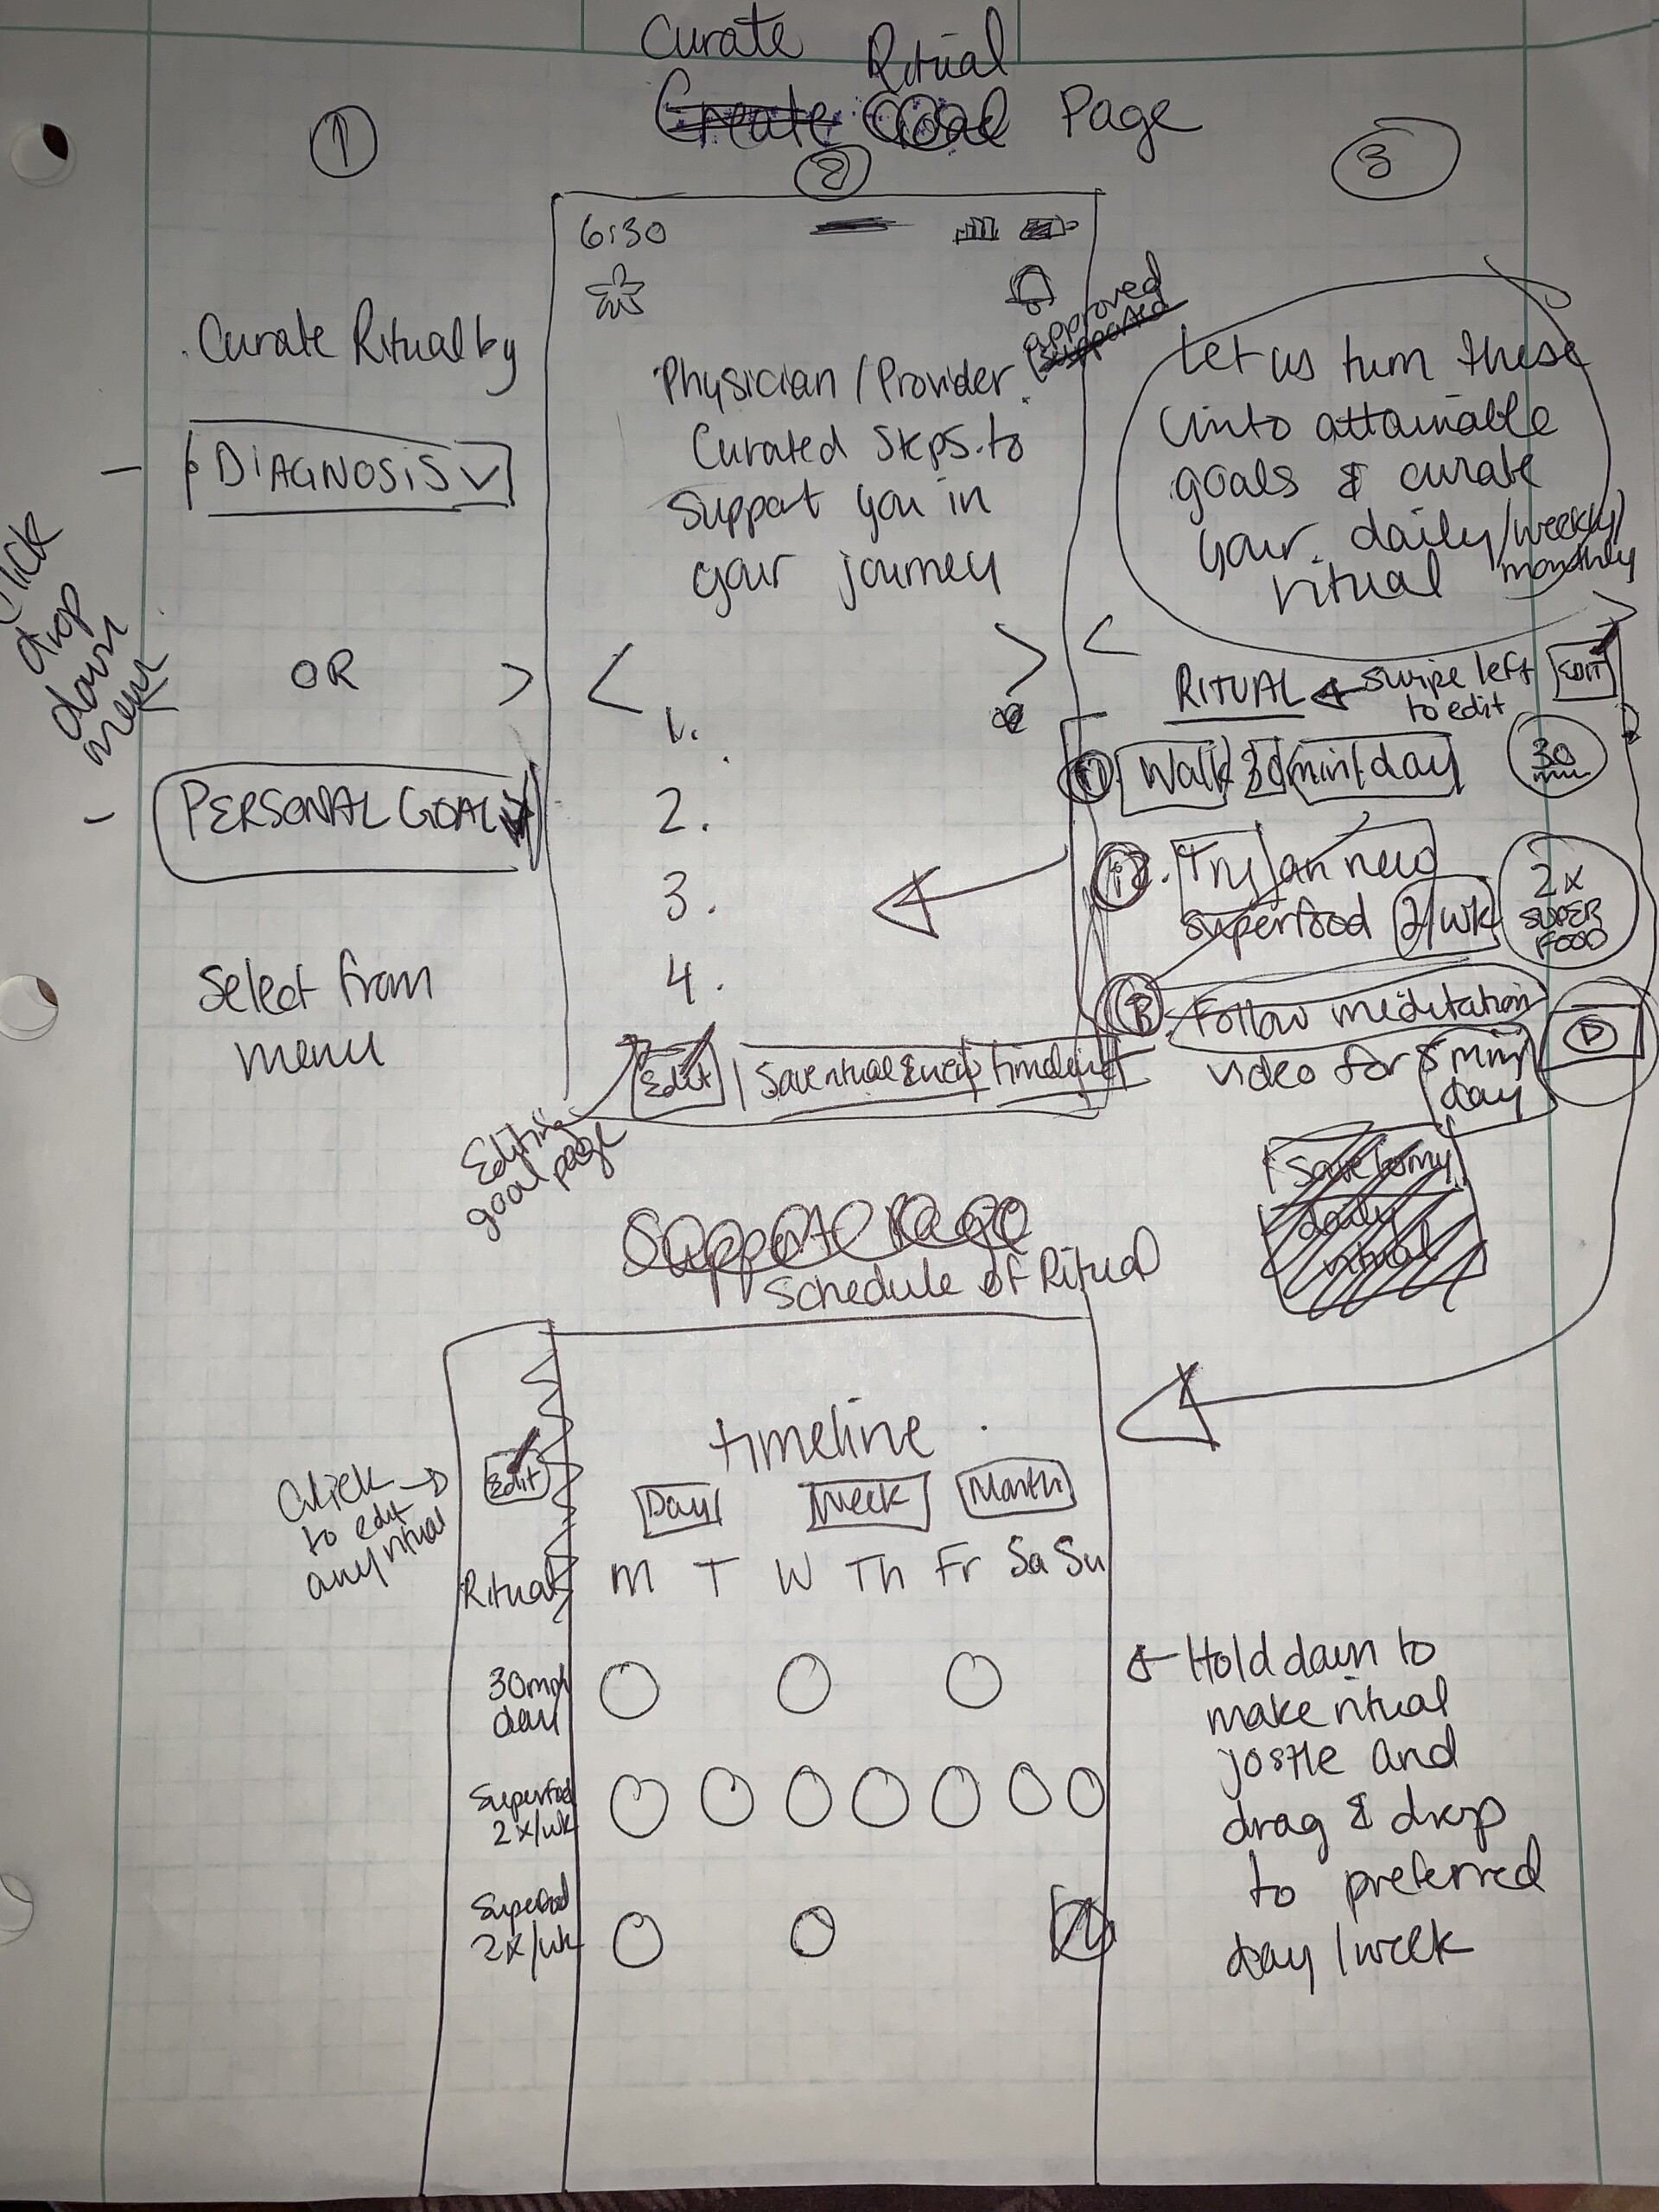 Curate Ritual
Create Goal Page
1
2
3
6:30
Curate Ritual by
DIAGNOSIS
OR
PERSONAL GOAL
Select from
menu
Click
drop
down
menu
approved
supported
Physician / Provider
Curated Steps to
support you in
your journey
<
>
1.
2.
3.
4.
Edit
Save ritual & view timeline
Editing
goal page
Let us turn these
into attainable
goals & curate
your daily/weekly/
monthly
ritual
<
>
RITUAL
swipe left
to edit
EDIT
Walk 30 min/day
30
min
Try an new
superfood 2/wk
2x
SUPER
FOOD
Follow meditation
video for 5 min/
day
Save to my
daily
ritual
Support Page
Schedule of Ritual
timeline
Day
Week
Month
Click
to edit
any ritual
Edit
Ritual
M T W Th Fr Sa Su
30min
day
Superfood
2x/wk
Superfood
2x/wk
Hold down to
make ritual
jostle and
drag & drop
to preferred
day / week